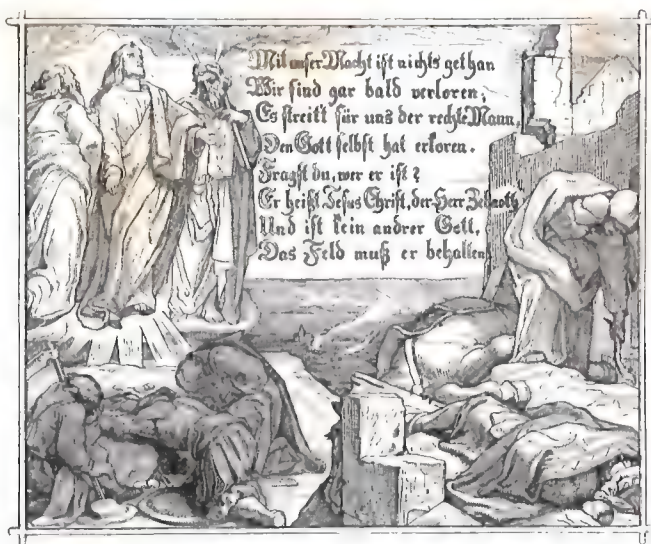 Mit unser Macht ist nichts gethan
Wir sind gar bald verloren;
Es streitt für uns der rechte Mann,
Den Gott selbst hat erkoren.
Fragst du, wer er ist?
Er heißt Jesus Christ, der Herr Zebaoth
Und ist kein andrer Gott,
Das Feld muß er behalten